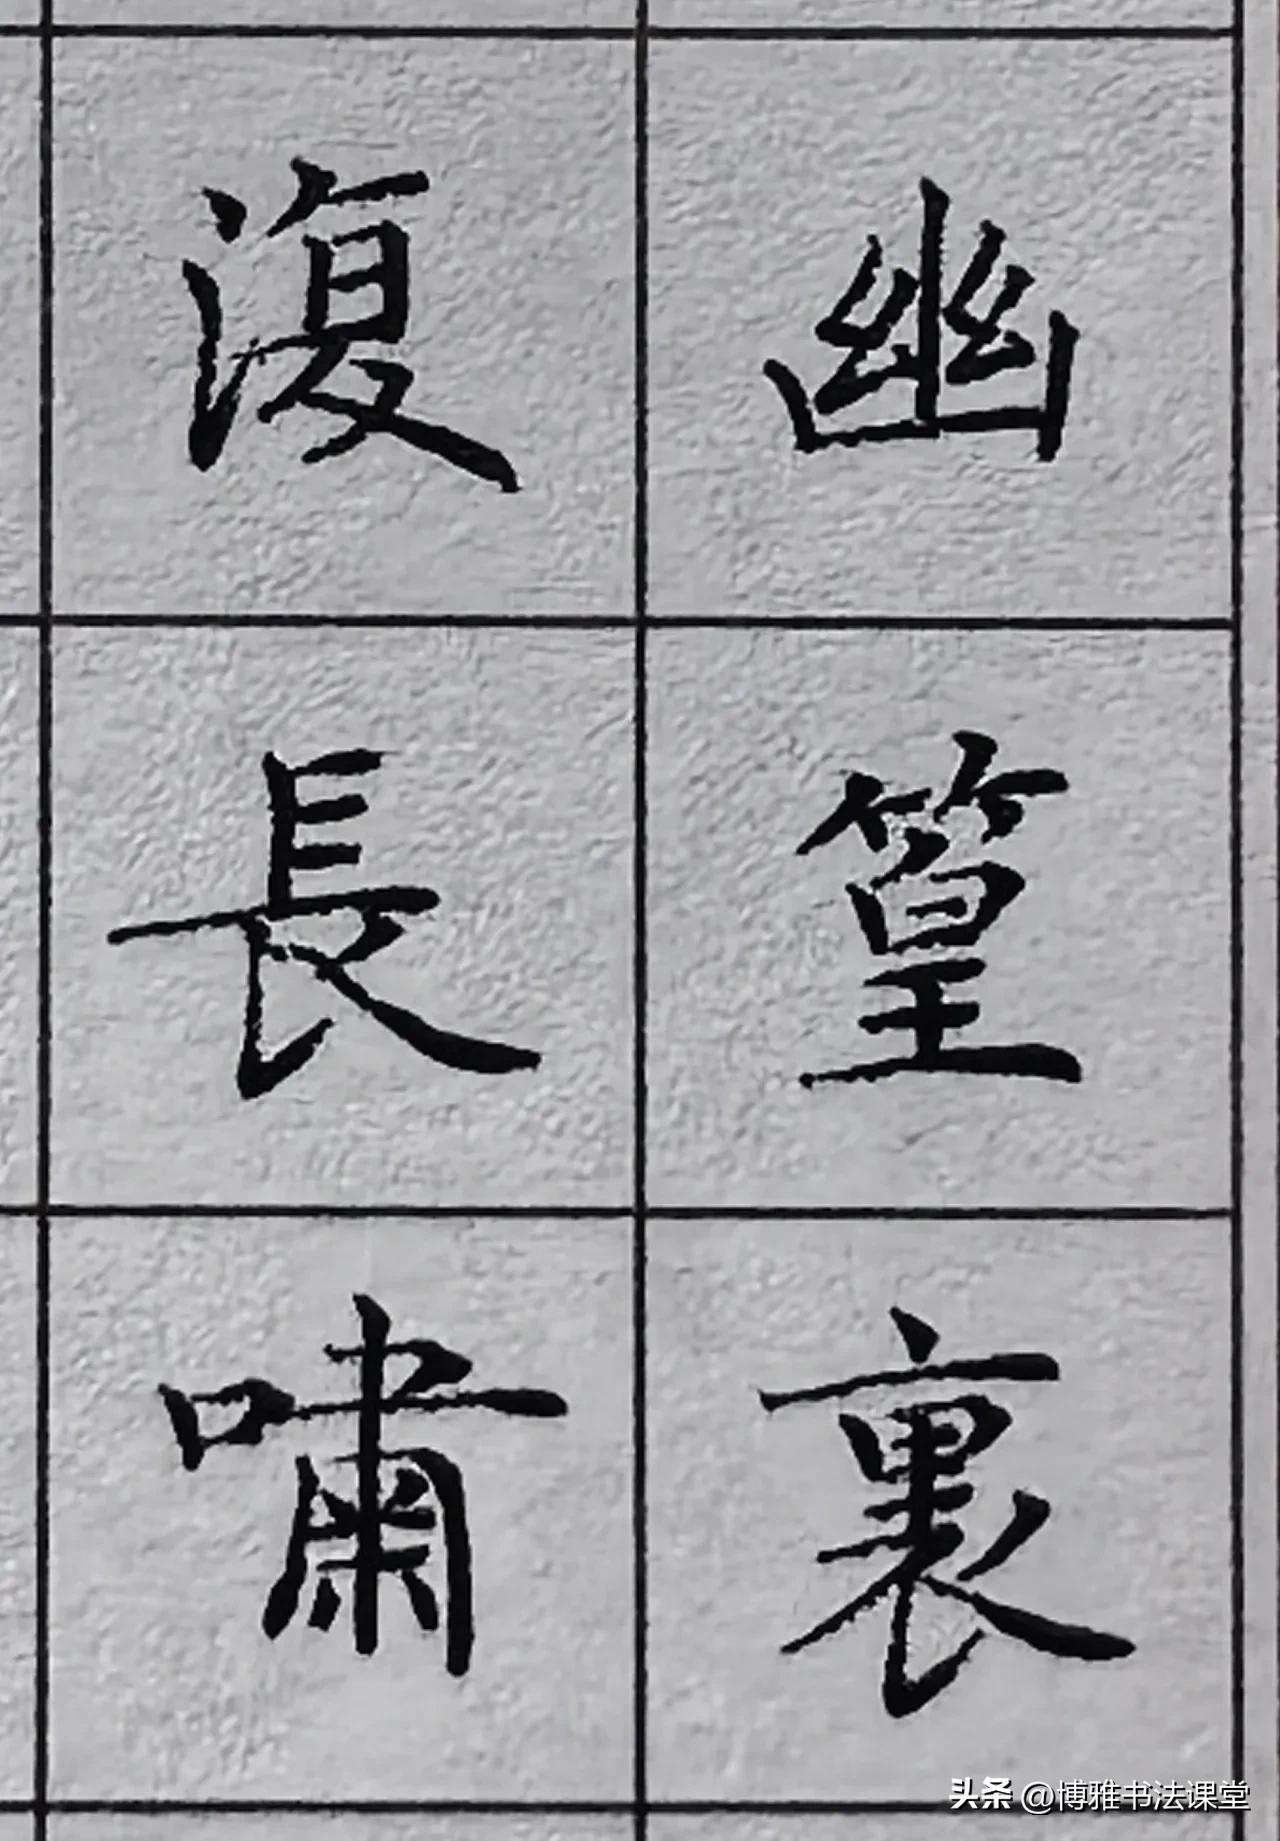 幽篁裏
復長嘯
头条 @博雅书法课堂